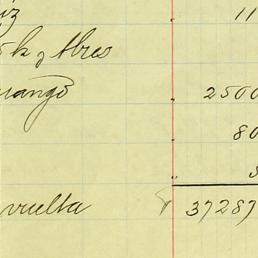 iz 11
5k y Abres
uangó 2500
80
vuelta $ 37287